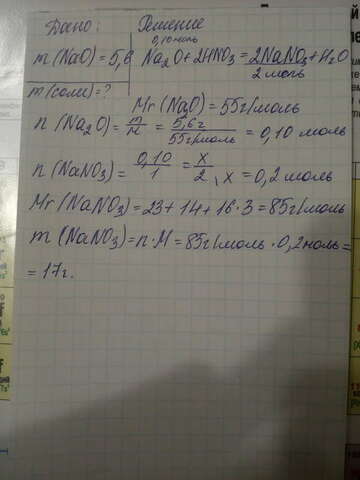 Дано: Решение
0,10 моль
m(NaO)=5,6 Na₂O+2HNO₃=2NaNO₃+H₂O
2 моль
m(соли)=?
Mr(NaO)=55г/моль
n(Na₂O)=m/M=5,6г/55г/моль=0,10 моль
n(NaNO₃)=0,10/1=x/2, x=0,2 моль
Mr(NaNO₃)=23+14+16·3=85г/моль
m(NaNO₃)=n·M=85г/моль·0,2моль=
=17г.